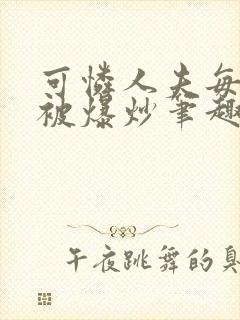 可怜人夫每
被爆炒笔趣
午夜跳舞的臭